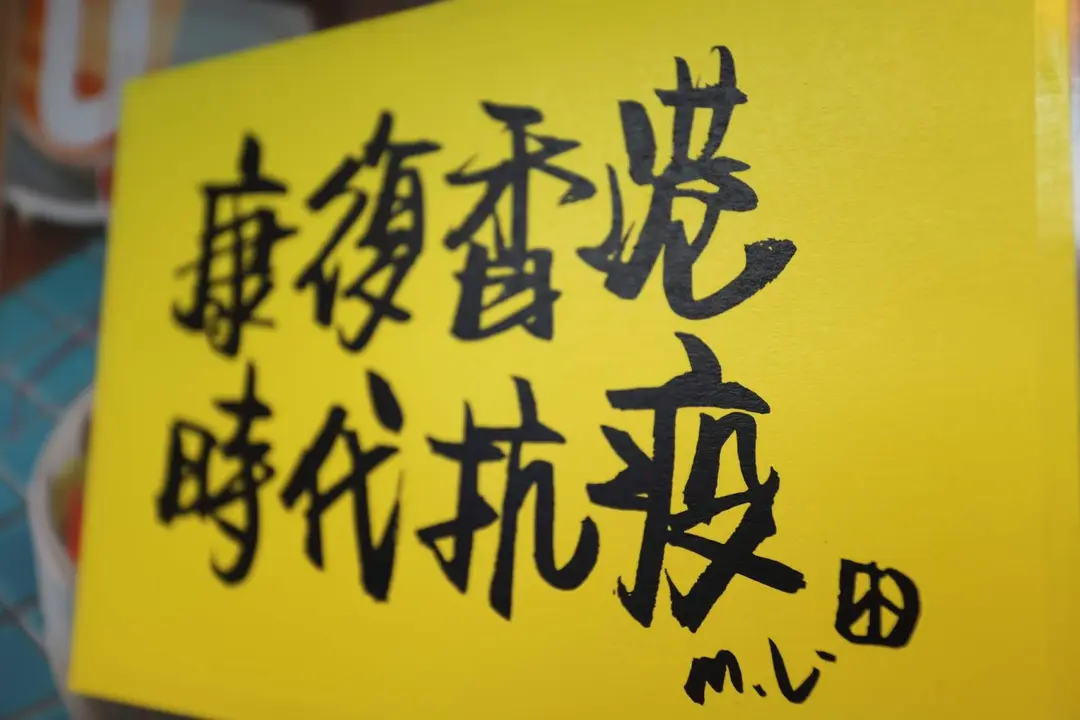 康復香港
時代抗疫
M.L